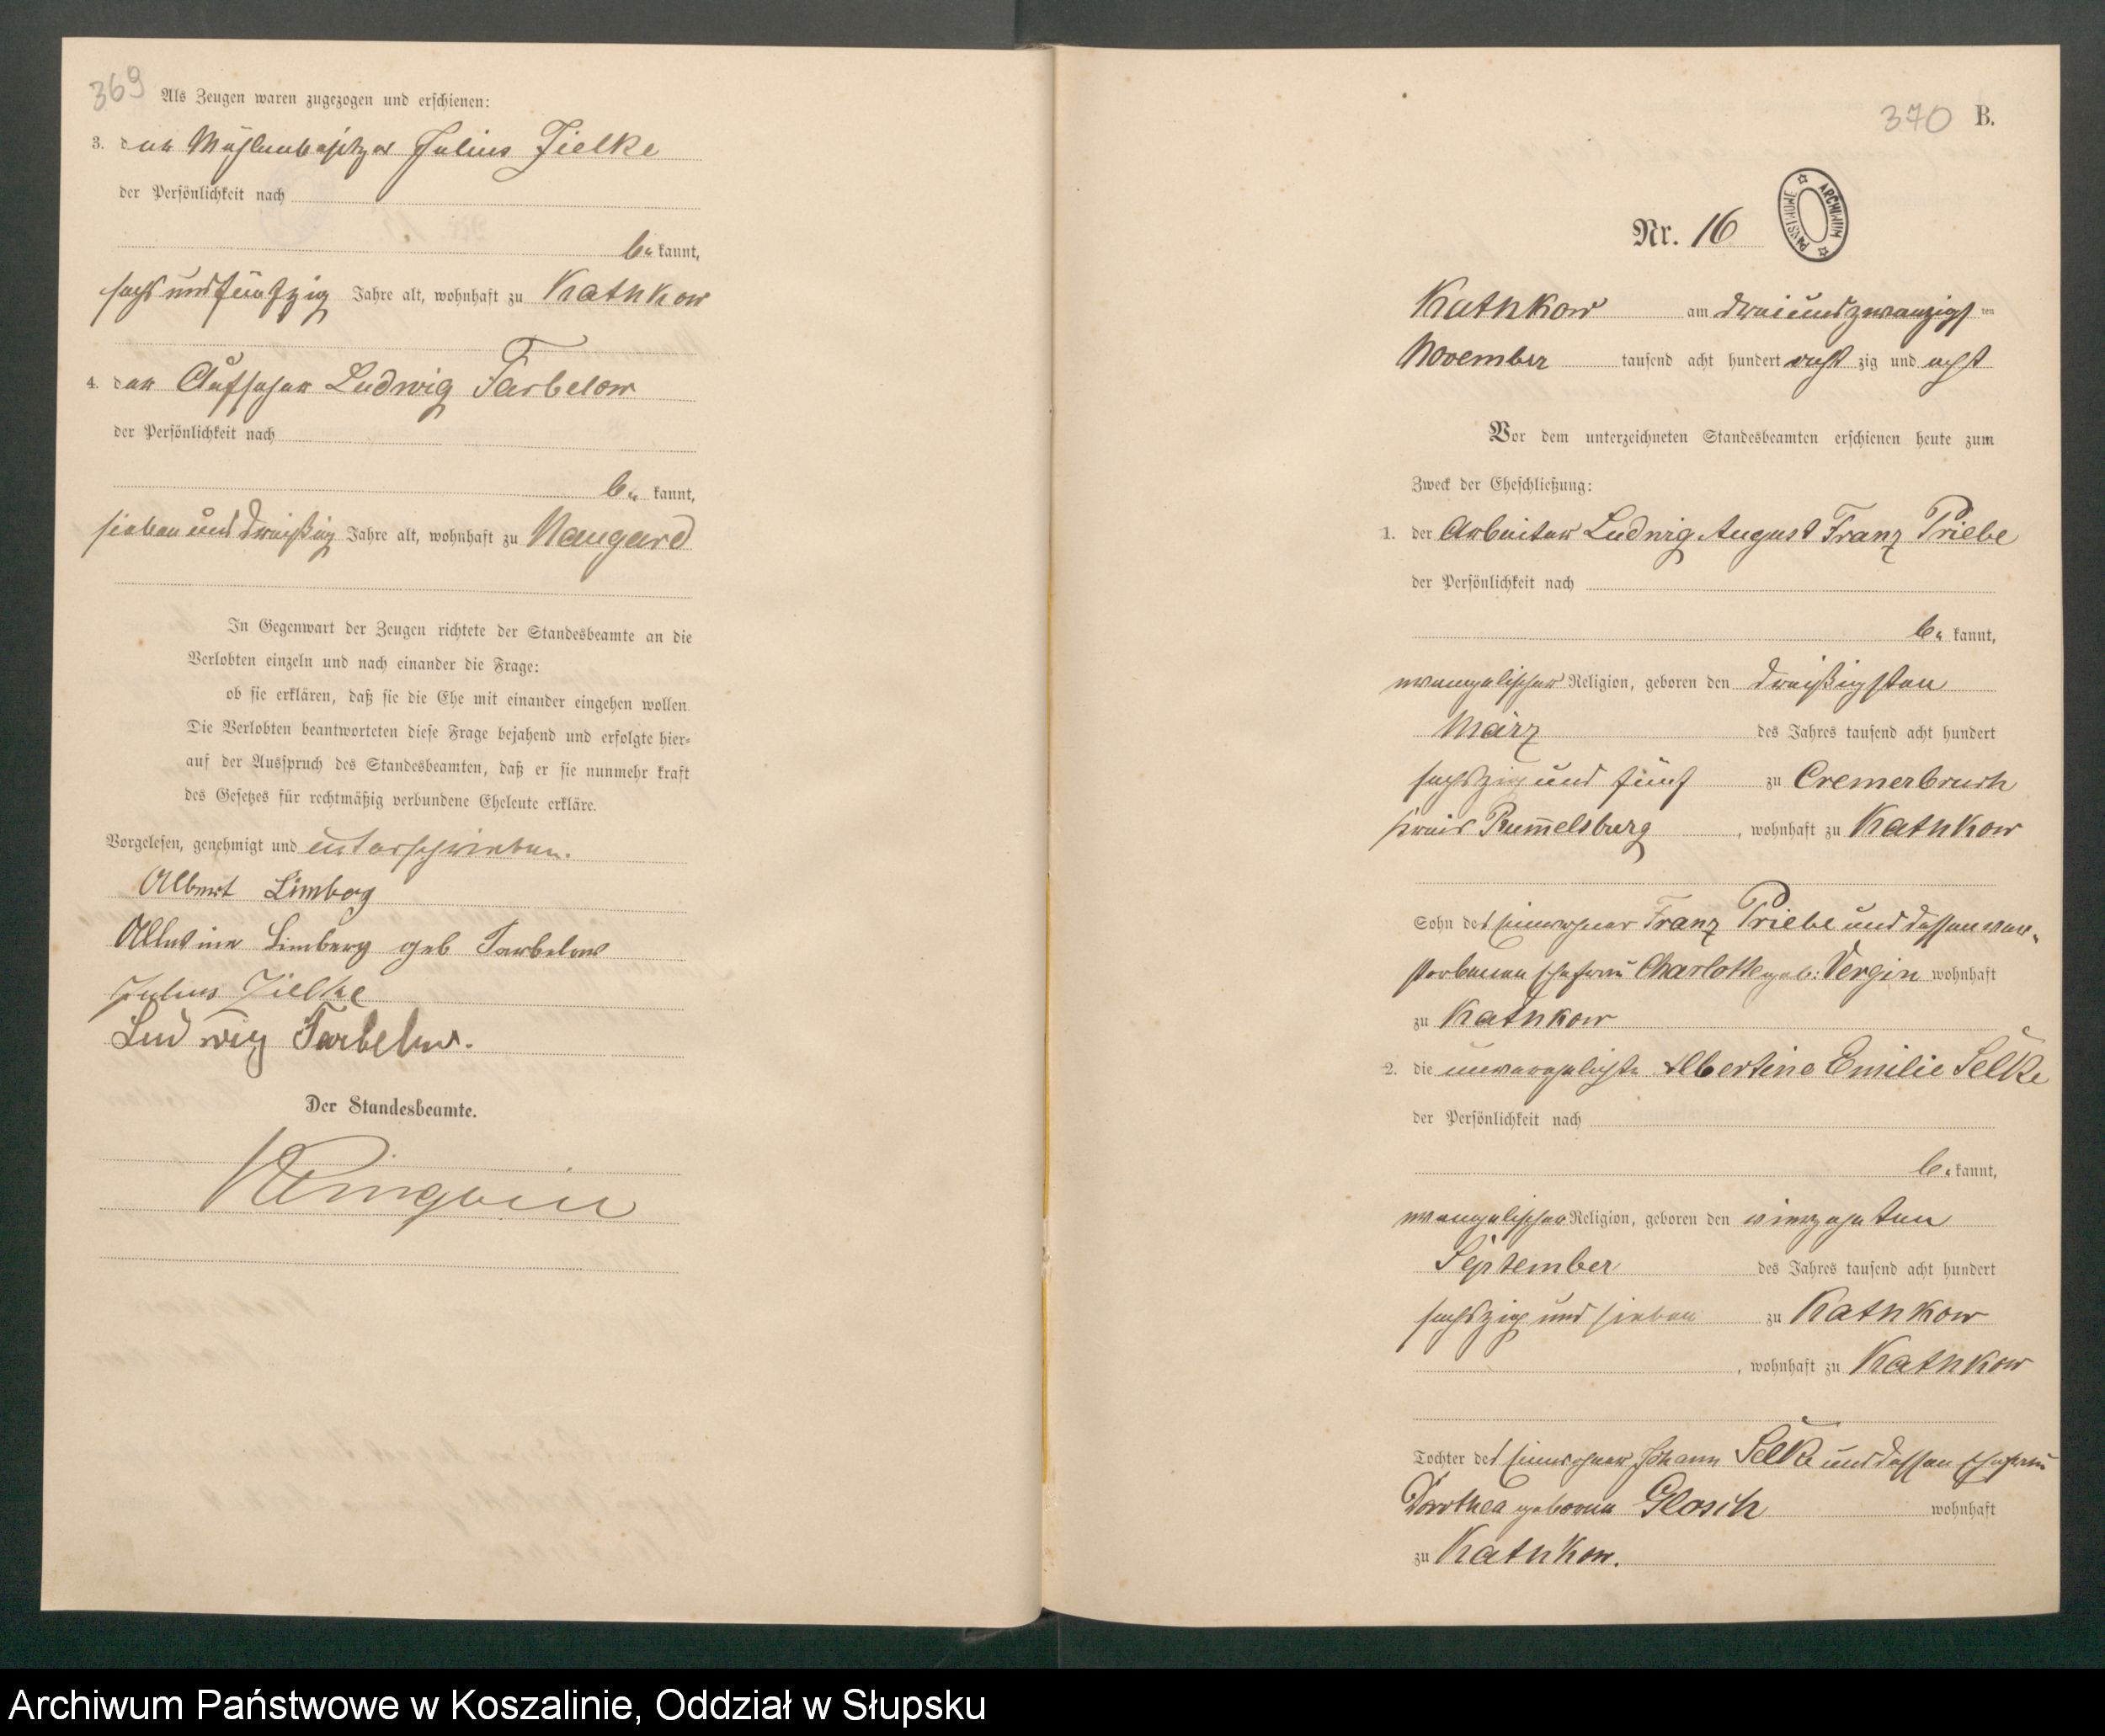 369
Als Zeugen waren zugezogen und erschienen:
3. der Mühlenbesitzer Julius Zielke
der Persönlichkeit nach
be kannt,
sechs und fünfzig Jahre alt, wohnhaft zu Kathkow
4. der Aufseher Ludwig Tarbelow
der Persönlichkeit nach
be kannt,
sieben und dreißig Jahre alt, wohnhaft zu Naugard
In Gegenwart der Zeugen richtete der Standesbeamte an die
Verlobten einzeln und nach einander die Frage:
ob sie erklären, daß sie die Ehe mit einander eingehen wollen.
Die Verlobten beantworteten diese Frage bejahend und erfolgte hier=
auf der Ausspruch des Standesbeamten, daß er sie nunmehr kraft
des Gesetzes für rechtmäßig verbundene Eheleute erkläre.
Vorgelesen, genehmigt und unterschrieben.
Albert Limberg
Limberg geb Tarbelow
Julius Zielke
Ludwig Tarbelow.
Der Standesbeamte.
370 B.
Nr. 16
ARCHIWUM PAŃSTWOWE
Kathkow am drei und zwanzigs ten
November tausend acht hundert acht zig und acht
Vor dem unterzeichneten Standesbeamten erschienen heute zum
Zweck der Eheschließung:
1. der Arbeiter Ludwig August Franz Priebe
der Persönlichkeit nach
be kannt,
evangelischer Religion, geboren den dreißigsten
März des Jahres tausend acht hundert
sechszig und fünf zu Cremerbruch
Kreis Rummelsburg, wohnhaft zu Kathkow
Sohn des Einwohner Franz Priebe und dessen ver-
storbenen Ehefrau Charlotte geb: Vergin wohnhaft
zu Kathkow
2. die unverehelichte Albertine Emilie Selke
der Persönlichkeit nach
be kannt,
evangelischer Religion, geboren den vierzehnten
September des Jahres tausend acht hundert
sechszig und sieben zu Kathkow
, wohnhaft zu Kathkow
Tochter des Einwohner Johann Selke und dessen Ehefrau
Dorothea geborene Glosch wohnhaft
zu Kathkow.
Archiwum Państwowe w Koszalinie, Oddział w Słupsku